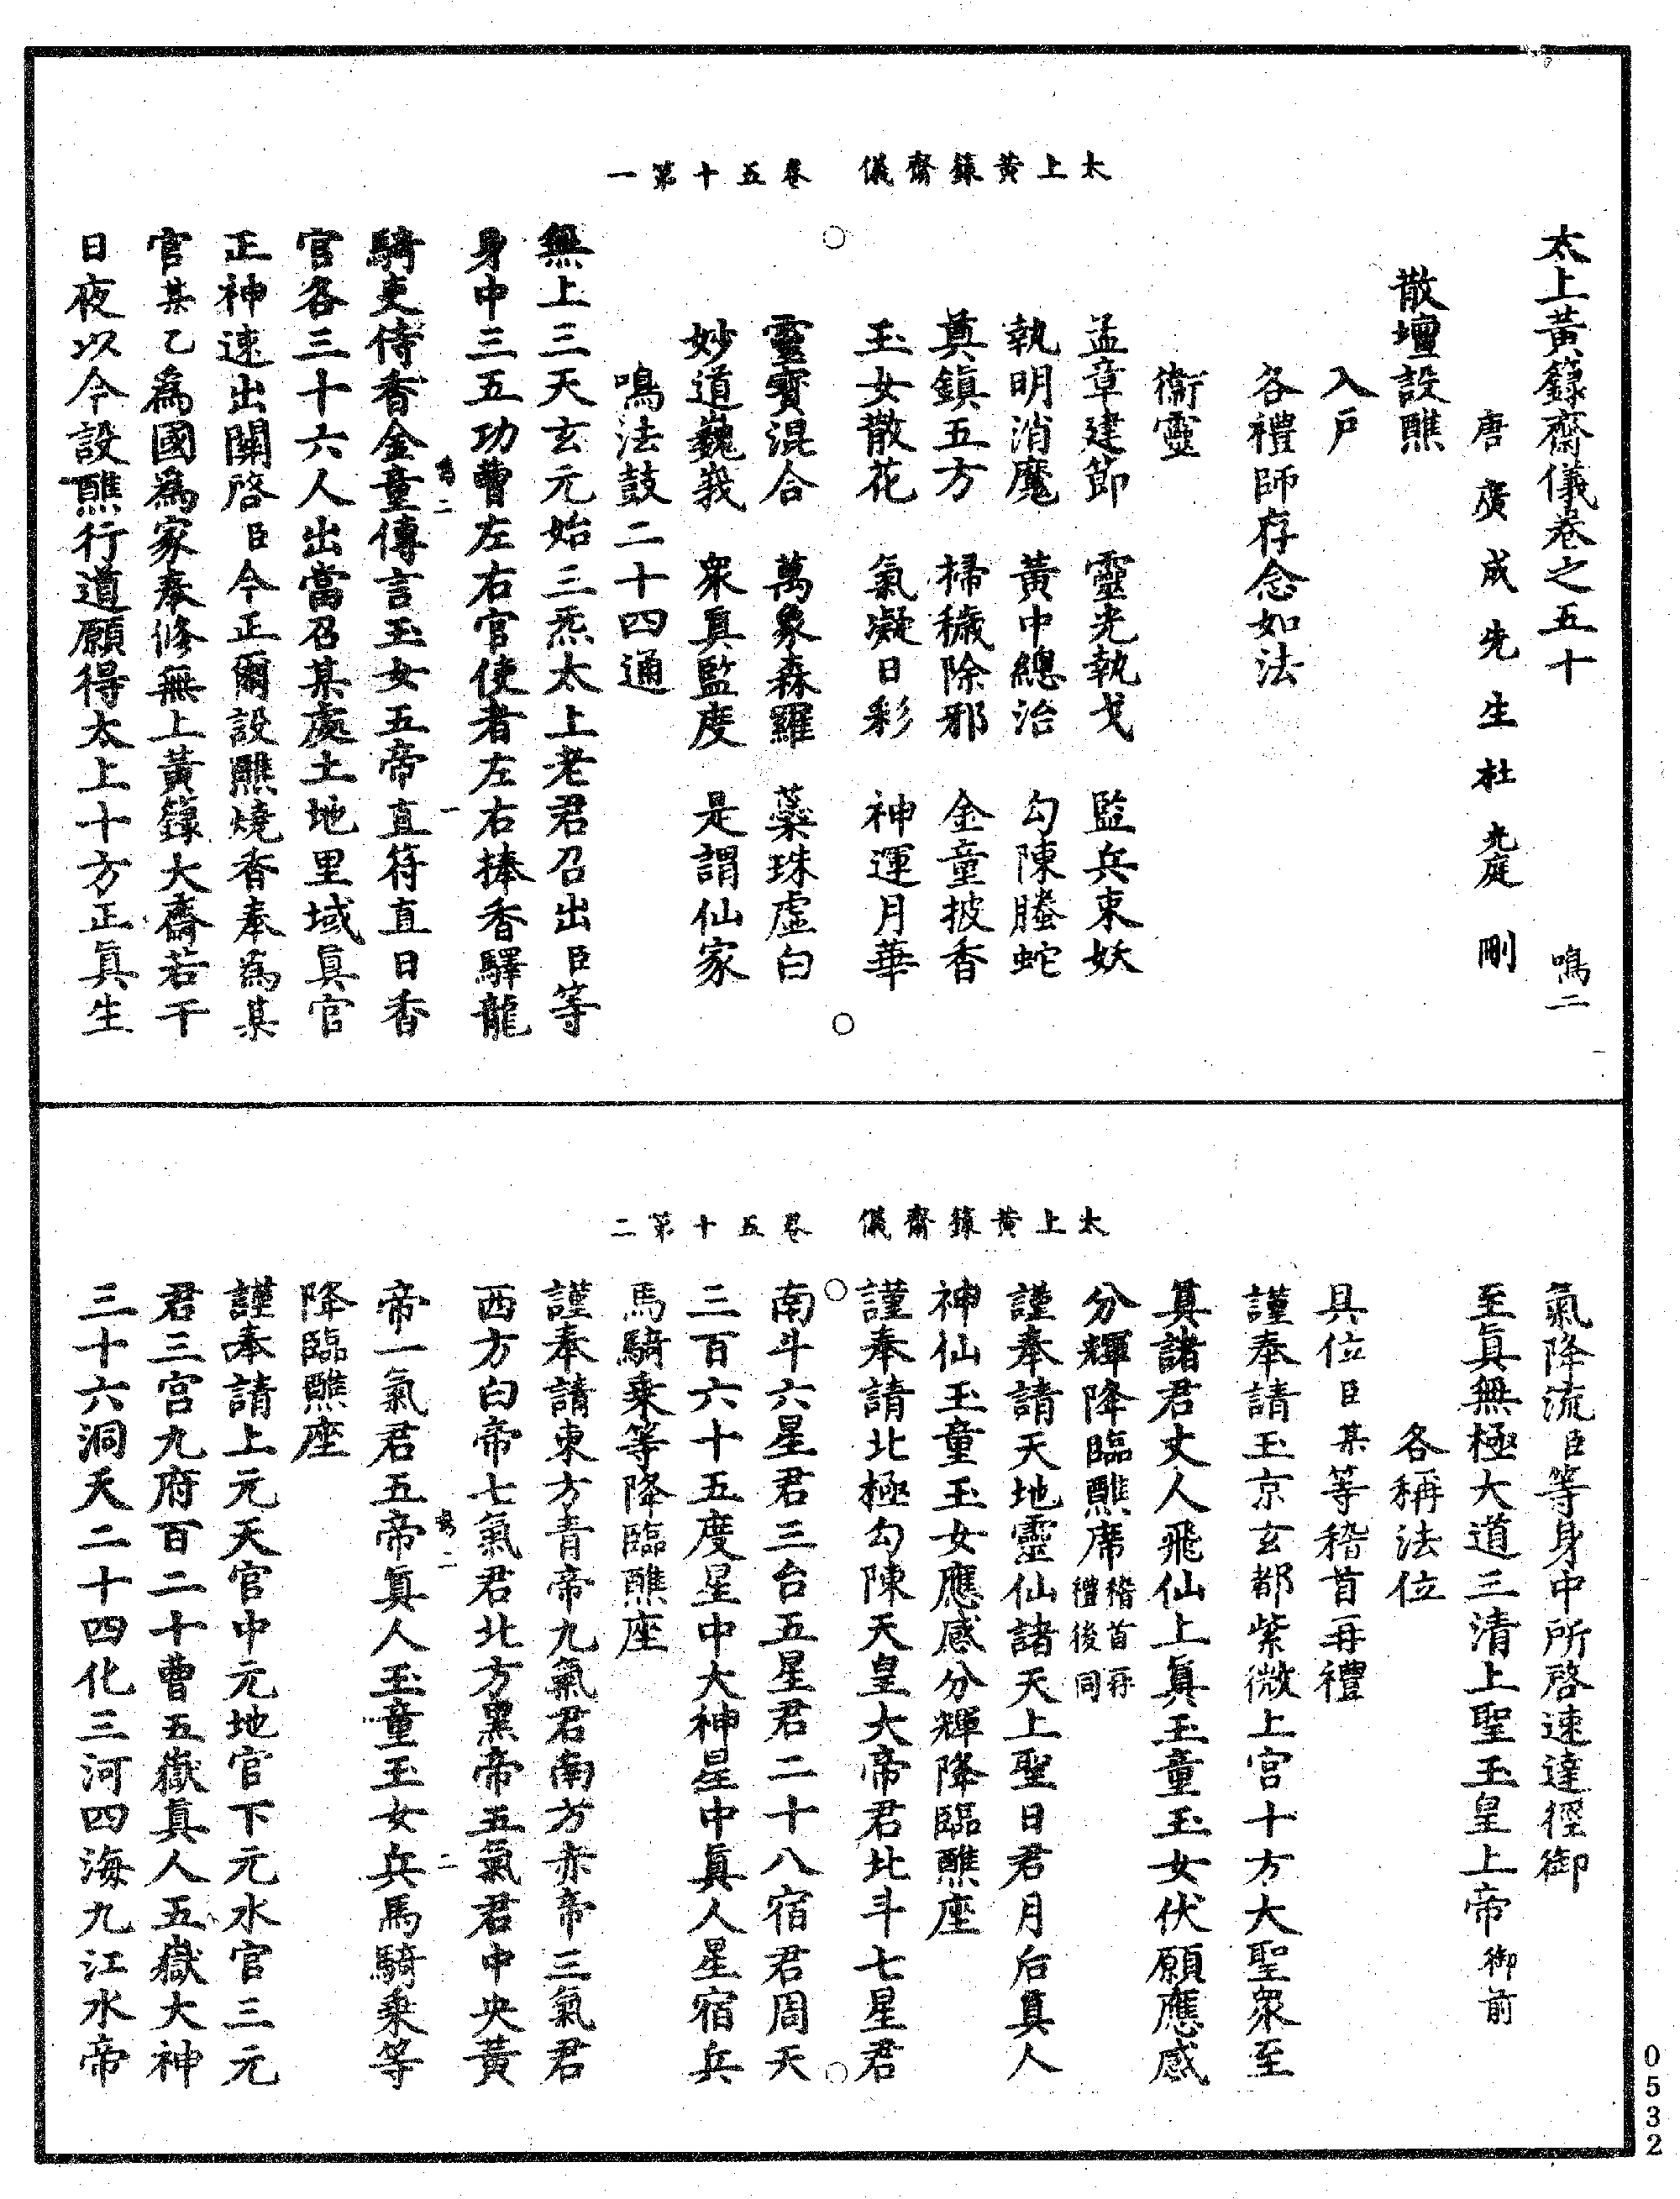 太上黃籙齋儀　卷五十第一
太上黃籙齋儀卷之五十　鳴二
唐廣成先生杜光庭刪
散壇設醮
入戶
各禮師存念如法
衞靈
孟章建節　靈光執戈　監兵束妖
執明消魔　黃中總治　勾陳螣蛇
奠鎮五方　掃穢除邪　金童披香
玉女散花　氣凝日彩　神運月華
靈寶混合　萬象森羅　蘂珠虛白
妙道巍峩　衆真監度　是謂仙家
鳴法鼓二十四通
無上三天玄元始三炁太上老君召出臣等
身中三五功曹左右官使者左右捧香驛龍
騎吏侍香金童傳言玉女五帝直符直日香
鳴二　一
官各三十六人出當召某處土地里域真官
正神速出關啓臣今正爾設醮燒香奉為某
官某乙為國為家奉修無上黃籙大齋若干
日夜以今設醮行道願得太上十方正真生
太上黃籙齋儀　卷五十第二
氣降流臣等身中所啓速達徑御
至真無極大道三清上聖玉皇上帝御前
各稱法位
具位臣某等稽首再禮
謹奉請玉京玄都紫微上宮十方大聖衆至
真諸君丈人飛仙上真玉童玉女伏願應感
分輝降臨醮席稽首再禮後同
謹奉請天地靈仙諸天上聖日君月后真人
神仙玉童玉女應感分輝降臨醮座
謹奉請北極勾陳天皇大帝君北斗七星君
南斗六星君三台五星君二十八宿君周天
三百六十五度星中大神星中真人星宿兵
馬騎乘等降臨醮座
謹奉請東方青帝九氣君南方赤帝三氣君
西方白帝七氣君北方黑帝五氣君中央黃
鳴二　二
帝一氣君五帝真人玉童玉女兵馬騎乘等
降臨醮座
謹奉請上元天官中元地官下元水官三元
君三宮九府百二十曹五嶽真人五嶽大神
三十六洞天二十四化三河四海九江水帝
0532